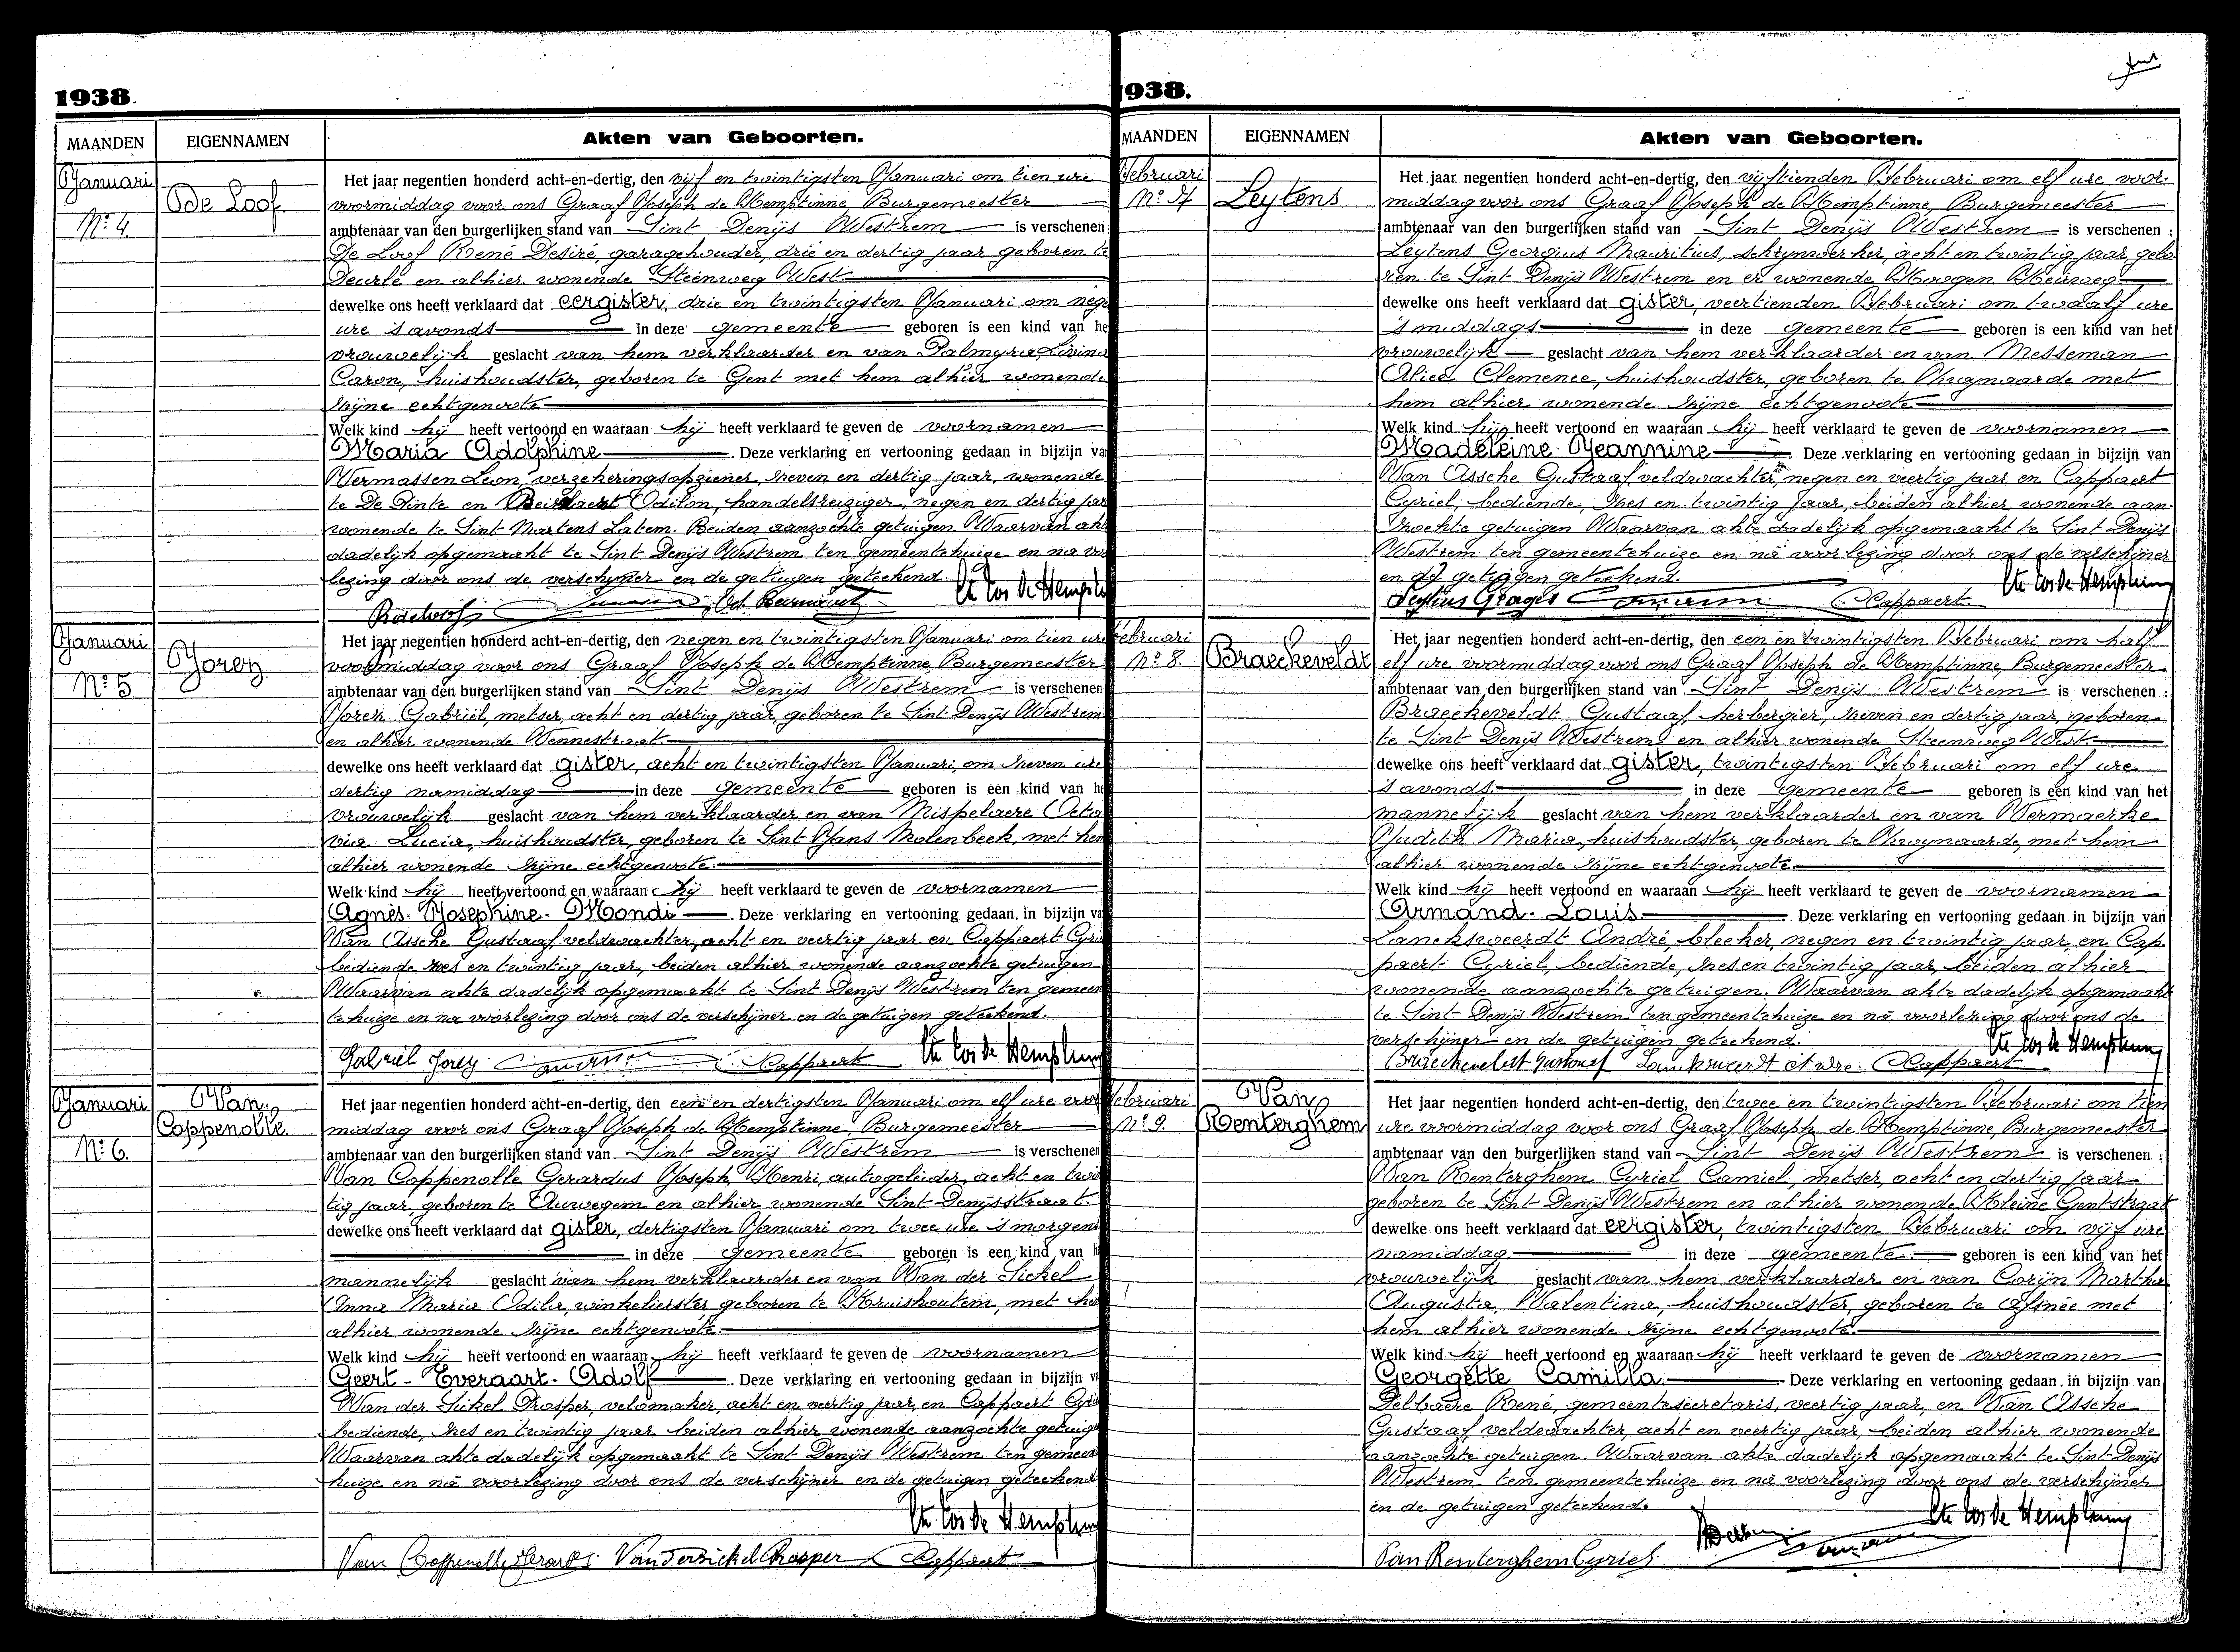 1938.
MAANDEN EIGENNAMEN Akten van Geboorten.
Januari
Nº 4.
De Loof
Het jaar negentien honderd acht-en-dertig, den vijf en twintigsten Januari om tien ure
voormiddag voor ons Graaf Joseph de Hemptinne, Burgemeester
ambtenaar van den burgerlijken stand van Sint Denijs Westrem is verschenen :
De Loof René Desiré, garagehouder, drie en dertig jaar geboren te
Deurle en alhier wonende Steenweg West.
dewelke ons heeft verklaard dat eergister, drie en twintigsten Januari om nege
ure 's avonds in deze gemeente geboren is een kind van he
vrouwelijk geslacht van hem verklaarder en van Palmyra Livina
Caron, huishoudster, geboren te Gent met hem alhier wonende
zijne echtgenoote
Welk kind hij heeft vertoond en waaraan hij heeft verklaard te geven de voornamen
Maria Adolphine . Deze verklaring en vertooning gedaan in bijzijn va
Vermassen Leon, verzekeringsopziener, zeven en dertig jaar, wonende
te De Pinte en Odilon, handelsreiziger, negen en dertig jaar
wonende, te Sint Martens Latem. Beiden aanzochte getuigen. Waarvan akt
dadelijk opgemaakt te Sint Denijs Westrem ten gemeentehuize en na voor
lezing door ons de verschijner en de getuigen geteekend.
Cte Jos de Hempti
Januari
Nº 5
Jorez
Het jaar negentien honderd acht-en-dertig, den negen en twintigsten Januari om tien ure
voormiddag voor ons Graaf Joseph de Hemptinne, Burgemeester
ambtenaar van den burgerlijken stand van Sint Denijs Westrem is verschenen
Jorez Gabriël, metser, acht en dertig jaar, geboren te Sint Denijs Westrem
en alhier wonende Vennestraat.
dewelke ons heeft verklaard dat gister, acht en twintigsten Januari, om zeven ure
dertig namiddag in deze gemeente geboren is een kind van he
vrouwelijk geslacht van hem verklaarder en van Mispelaere Octa
via Lucia, huishoudster, geboren te Sint Jans Molenbeek, met hem
alhier wonende zijne echtgenoote.
Welk kind hij heeft vertoond en waaraan hij heeft verklaard te geven de voornamen
Agnès- Josephine- Mondi . Deze verklaring en vertooning gedaan in bijzijn va
Van Assche Gustaaf veldwachter, acht en veertig jaar en Cappaert Cyri
bediende zes en twintig jaar, beiden alhier wonende aanzochte getuigen
Waarvan akte dadelijk opgemaakt te Sint Denijs Westrem ten gemeen
tehuize en na voorlezing door ons de verschijner en de getuigen geteekend.
Gabriël Jorez Cappaert Cte Jos de Hemptinn
Januari
Nº 6.
Van
Coppenolle.
Het jaar negentien honderd acht-en-dertig, den een en dertigsten Januari om elf ure voor
middag voor ons Graaf Joseph de Hemptinne, Burgemeester
ambtenaar van den burgerlijken stand van Sint Denijs Westrem is verschenen
Van Coppenolle Gerardus Joseph, Henri, autogeleider, acht en twin
tig jaar, geboren te Auwegem en alhier wonende Sint Denijsstraat.
dewelke ons heeft verklaard dat gister, dertigsten Januari om twee ure 's morgens
in deze gemeente geboren is een kind van h
mannelijk geslacht van hem verklaarder en van Van der Sickel
Anna Maria Odila, winkelierster geboren te Kruishoutem, met hem
alhier wonende zijne echtgenoote.
Welk kind hij heeft vertoond en waaraan hij heeft verklaard te geven de voornamen
Geert - Everaart - Adolf . Deze verklaring en vertooning gedaan in bijzijn va
Van der Sickel Prosper, velomaker, acht en veertig jaar, en Cappaert Cyri
bediende, zes en twintig jaar beiden alhier wonende aanzochte getuige
Waarvan akte dadelijk opgemaakt te Sint Denijs Westrem ten gemeen
huize en na voorlezing door ons de verschijner en de getuigen geteekend
Cte Jos de Hemptinn
Van Coppenolle Gerard. Vandersickel Prosper Cappaert
1938.
MAANDEN EIGENNAMEN Akten van Geboorten.
Februari
Nº 7
Leytens
Het jaar negentien honderd acht-en-dertig, den vijftienden Februari om elf ure voor-
middag voor ons Graaf Joseph de Hemptinne, Burgemeester
ambtenaar van den burgerlijken stand van Sint Denijs Westrem is verschenen :
Leytens Georgius Mauritius, schrijnwerker, acht en twintig jaar, gebo-
ren te Sint Denijs Westrem en er wonende Hoogen Heirweg
dewelke ons heeft verklaard dat gister, veertienden Februari om twaalf ure
's middags in deze gemeente geboren is een kind van het
vrouwelijk geslacht van hem verklaarder en van Messeman
Alice Clemence, huishoudster, geboren te Zwynaarde met
hem alhier wonende zijne echtgenoote
Welk kind hij heeft vertoond en waaraan hij heeft verklaard te geven de voornamen
Madeleine Jeannine . Deze verklaring en vertooning gedaan in bijzijn van
Van Assche Gustaaf veldwachter, negen en veertig jaar en Cappaert
Cyriel, bediende, zes en twintig jaar, beiden alhier wonende aan-
zochte getuigen Waarvan akte dadelijk opgemaakt te Sint Denijs
Westrem ten gemeentehuize en na voorlezing door ons de verschijner
en de getuigen geteekend.
Cte Jos de Hemptinn
Cappaert
Februari
Nº 8.
Braeckeveldt
Het jaar negentien honderd acht-en-dertig, den een en twintigsten Februari om half
elf ure voormiddag voor ons Graaf Joseph de Hemptinne, Burgemeester
ambtenaar van den burgerlijken stand van Sint Denijs Westrem is verschenen :
Braeckeveldt Gustaaf, herbergier, zeven en dertig jaar, geboren
te Sint Denijs Westrem en alhier wonende Steenweg West.
dewelke ons heeft verklaard dat gister, twintigsten Februari om elf ure
's avonds. in deze gemeente geboren is een kind van het
mannelijk geslacht van hem verklaarder en van Vermaerke
Judith Maria, huishoudster, geboren te Zwynaarde, met hem
alhier wonende zijne echtgenoote.
Welk kind hij heeft vertoond en waaraan hij heeft verklaard te geven de voornamen
Armand- Louis. . Deze verklaring en vertooning gedaan in bijzijn van
Lanckzweerdt André, bleeker, negen en twintig jaar, en Cap-
paert Cyriel, bediende, zes en twintig jaar, beiden alhier
wonende aanzochte getuigen. Waarvan akte dadelijk opgemaakt
te Sint Denijs Westrem ten gemeentehuize en na voorlezing door ons de
verschijner en de getuigen geteekend.
Cte Jos de Hemptinn
Braeckeveldt Gustaaf Cappaert
Februari
Nº 9.
Van
Renterghem
Het jaar negentien honderd acht-en-dertig, den twee en twintigsten Februari om tien
ure voormiddag voor ons Graaf Joseph de Hemptinne, Burgemeester
ambtenaar van den burgerlijken stand van Sint Denijs Westrem is verschenen :
Van Renterghem Cyriel Camiel, metser, acht en dertig jaar
geboren te Sint Denijs Westrem en alhier wonende Kleine Gentstraat
dewelke ons heeft verklaard dat eergister, twintigsten Februari om vijf ure
namiddag in deze gemeente geboren is een kind van het
vrouwelijk geslacht van hem verklaarder en van Corijn Martha
Augusta, Valentina, huishoudster, geboren te Afsnée met
hem alhier wonende zijne echtgenoote.
Welk kind hij heeft vertoond en waaraan hij heeft verklaard te geven de voornamen
Georgette Camilla. Deze verklaring en vertooning gedaan in bijzijn van
Delbaere René, gemeentesecretaris, veertig jaar, en Van Assche
Gustaaf veldwachter, acht en veertig jaar, beiden alhier wonende
aanzochte getuigen. Waarvan akte dadelijk opgemaakt te Sint Denijs
Westrem ten gemeentehuize en na voorlezing door ons de verschijner
en de getuigen geteekend.
Cte Jos de Hemptinn
Van Renterghem Cyriel